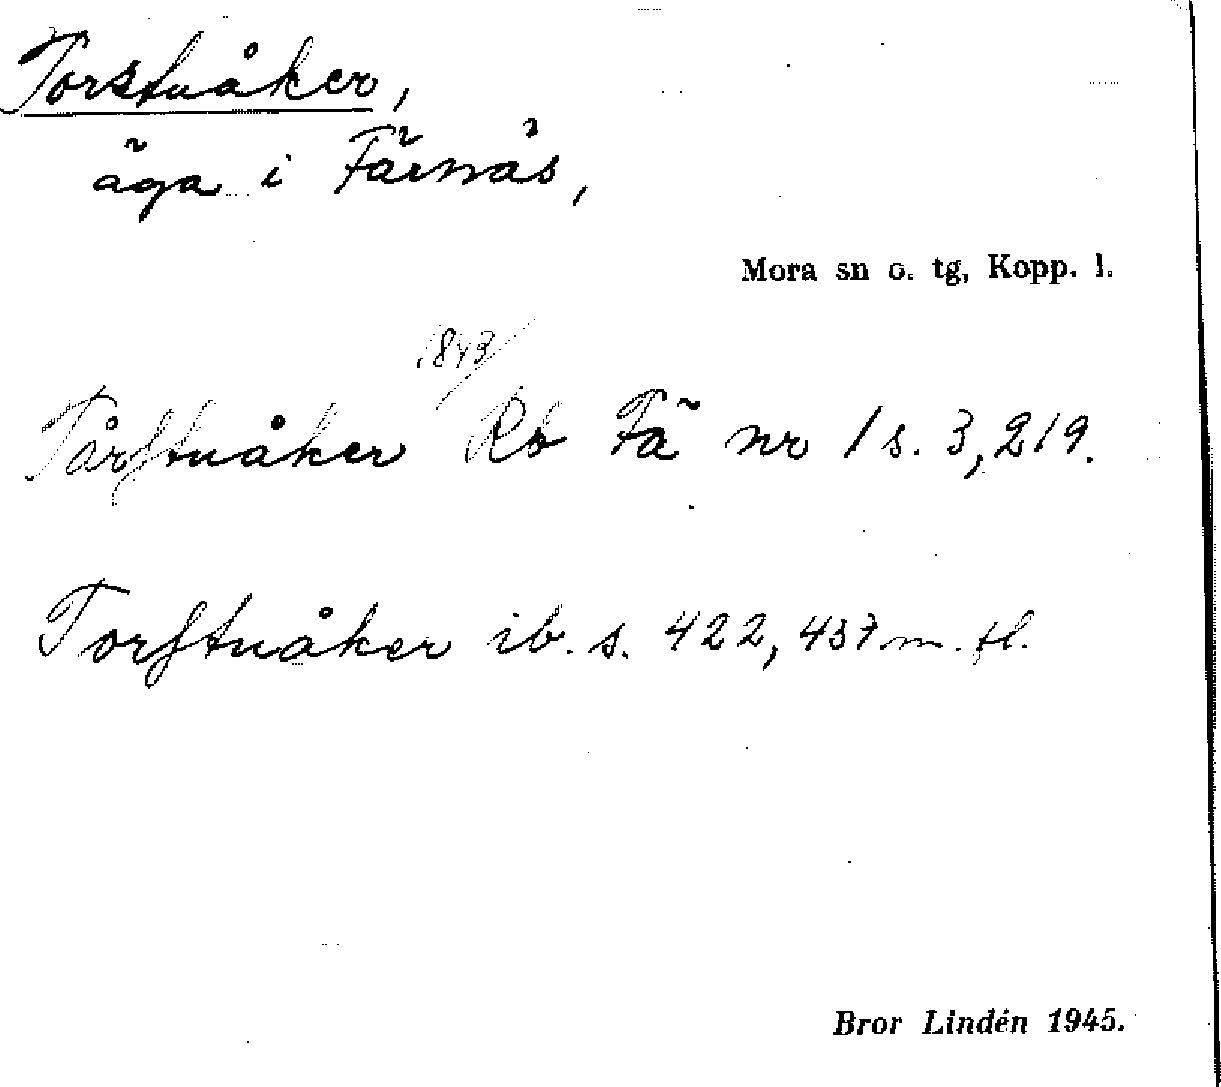 Torstuåker,
äga i Färnäs,
Mora sn o. tg, Kopp. l.
1843/
Tårstuåker Rb Fä nr 1 s. 3, 219.
Torstuåker ib. s. 422, 437 m. fl.
Bror Lindén 1945.